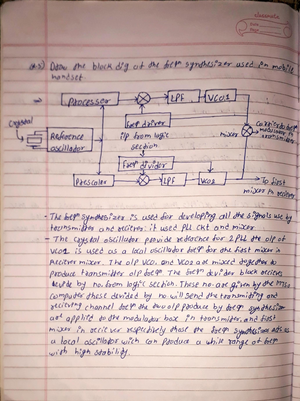 Q.5) Draw the block dig of the freqn synthesizer used in mobile
handset.
→ Processor
LPF
VCO1
Crystal
Reference
oscillator
freqn divider
i/p from logic
section.
freqn dividor
mixer
carrier to
modulator in
Prescaler
LPF
VCO2
To first
mixer in reciver
- The freqn synthesizer is used for developing all the signals use by
transmitter and reciver. it used PLL ckt and mixer
- The crystal oscillator provide reference for 2 PLL the o/p of
VCO1 is used as a local oscillator freqn for the first mixer in
reciver mixer. The o/p VCO1 and VCO2 are mixed together to
produce transmitter o/p freqn The freqn divider block recives
devide by no. from logic section. These no. are given by the
computer these devided by no will send the transmiting and
reciving channel freqn the two o/p produce by freqn synthesizer
are applied to the modulator in transmiter, and first
mixer in reciver respectively thus the freqn synthesizer acts as
a local oscillator wich can produce a while range of freqn
with high stability.